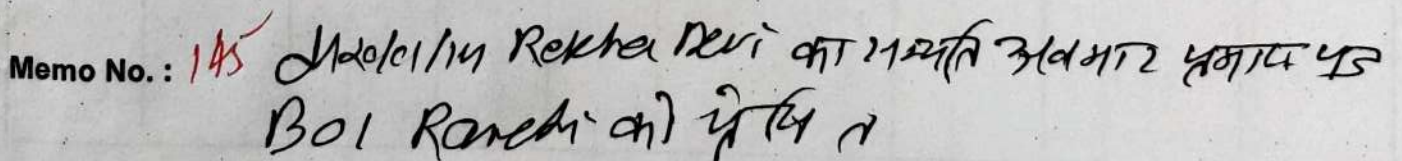 Memo No. : 145 Rekha Devi का सम्पति अवभार प्रमाण पत्र
BOI Ranchi को प्रेषित